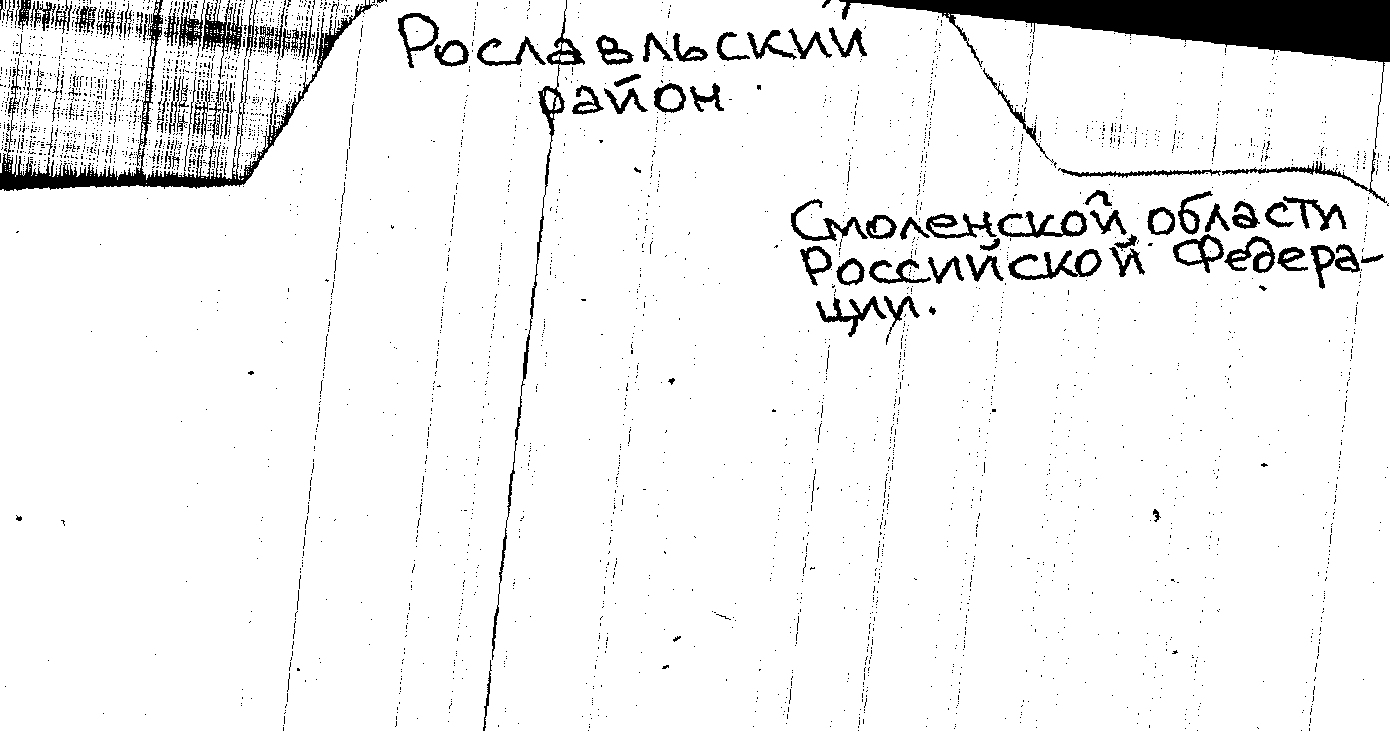 Рославльский
район
Смоленской области
Российской Федера-
ции.